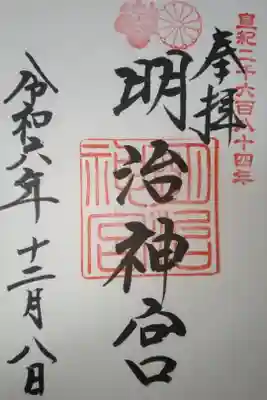 皇紀二千六百八十四年
奉拝
明治神宮
令和六年 十二月 八日
明治神宮